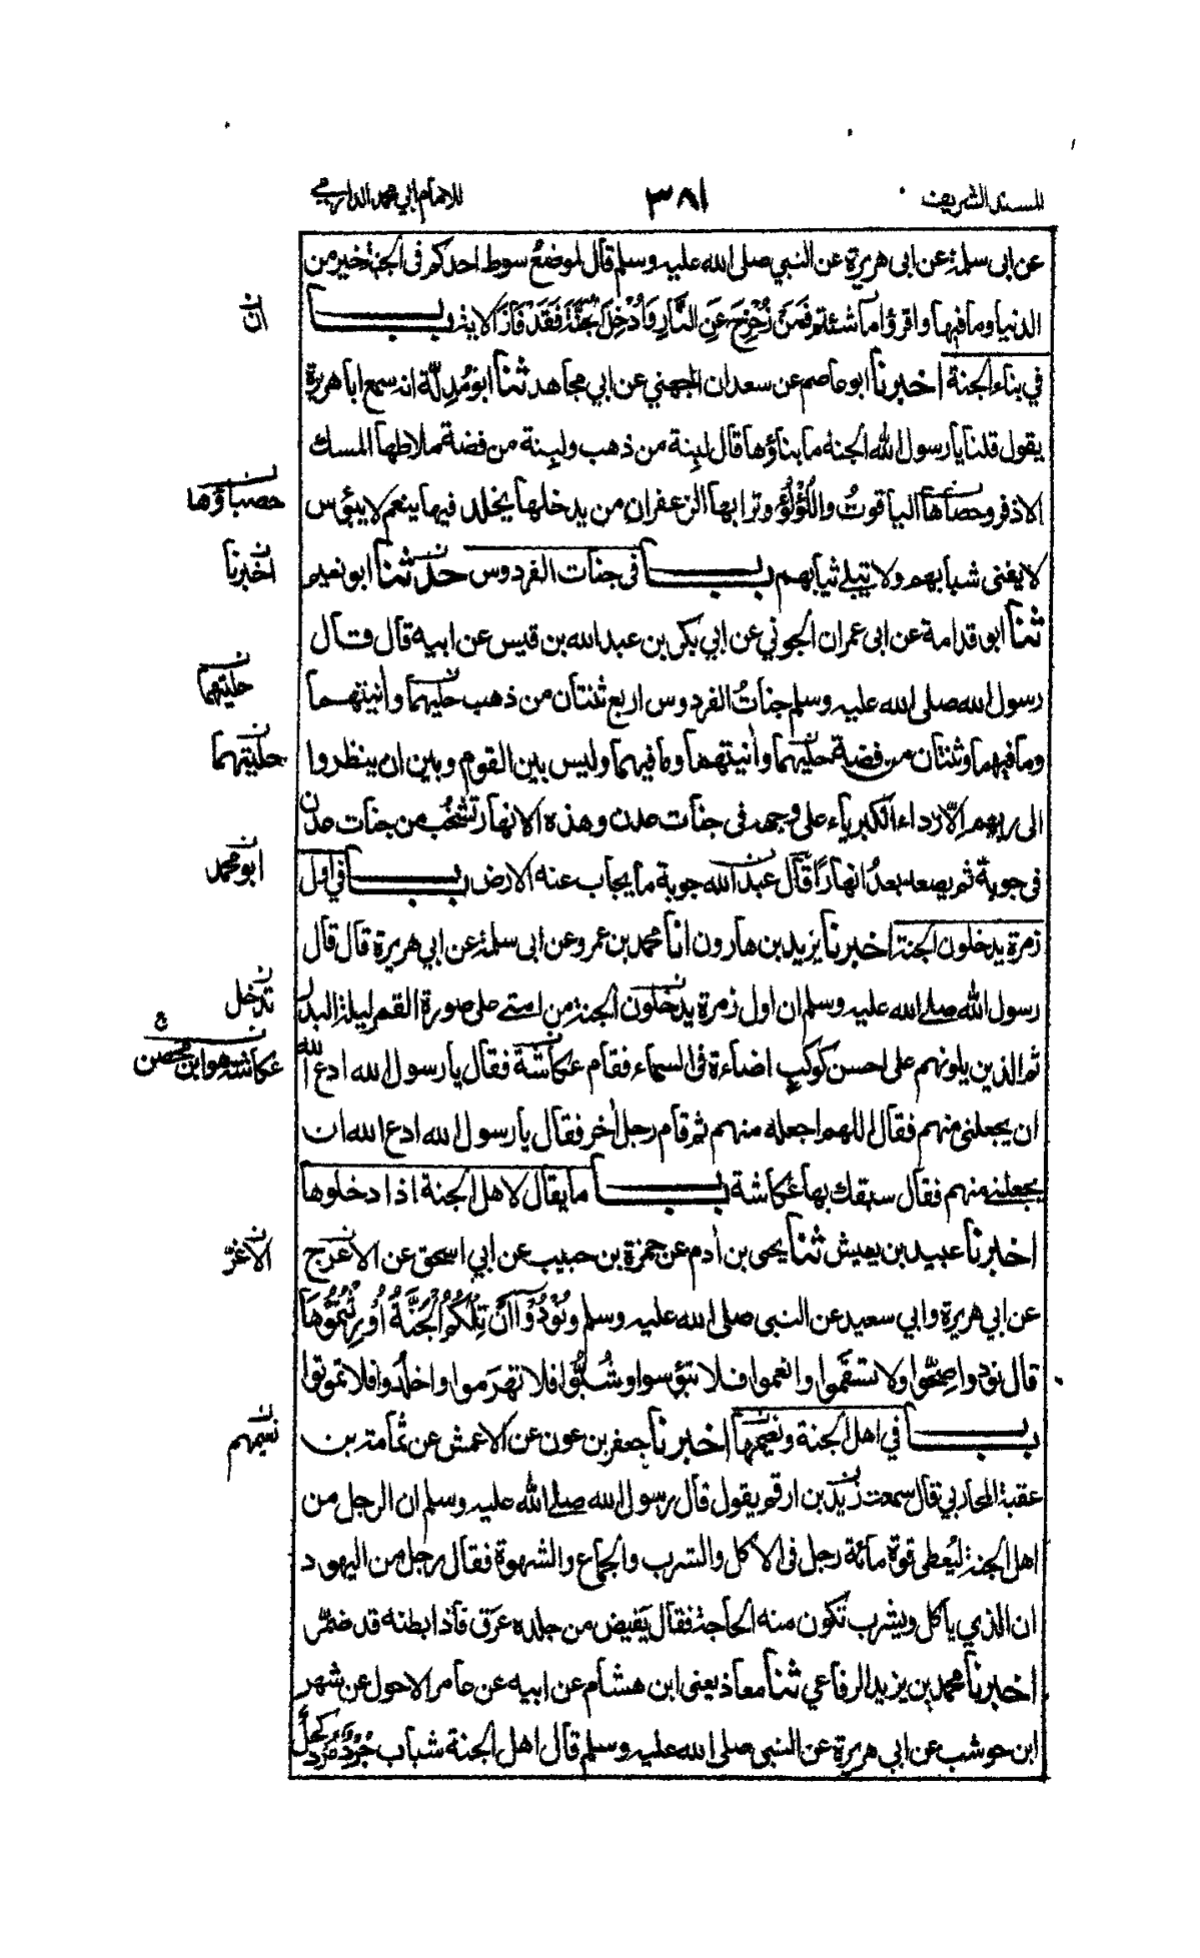 المسند الشريف ٣٨١ للامام ابي محمد الدارمي
عن ابى سلمة عن ابى هريرة عن النبي صلى الله عليه وسلم قال لموضع سوط احدكم فى الجنة خير من
الدنيا وما فيها واقرؤا ما شئتم فَمَنْ زُحْزِحَ عَنِ النَّارِ وَأُدْخِلَ الْجَنَّةَ فَقَدْ فَازَ الاية باب
ان
في بناء الجنة اخبرنا ابو عاصم عن سعدان الجهني عن ابي مجاهد ثنا ابو مُدِلَّة انه سمع ابا هريرة
يقول قلنا يا رسول الله الجنة ما بناؤها قال لبنة من ذهب ولبنة من فضة ملاطها المسك
الاذفر وحصاها الياقوتُ واللؤلؤ وترابها الزعفران من يدخلها يخلد فيها ينعم لا يبؤس
حصباؤها
لا يفنى شبابهم ولا تبلى ثيابهم باب فى جنات الفردوس حدثنا ابو نعيم
اخبرنا
ثنا ابو قدامة عن ابى عمران الجوني عن ابي بكر بن عبد الله بن قيس عن ابيه قال قال
رسول الله صلى الله عليه وسلم جناتُ الفردوس اربع ثنتان من ذهب حليهما وأنيتهما
حليتهما
وما فيهما وثنتان من فضة حليهما وأنيتهما وما فيهما وليس بين القوم وبين ان ينظروا
حليتهما
الى ربهم الّا رداء الكبرياء على وجهه فى جنات عدن وهذه الانهار تشخُب من جنات عدن
فى جوبة ثم يصعد بعدُ انهارًا قال عبد الله جوبة ما يجاب عنه الارض باب في اول
ابو محمد
زمرة يدخلون الجنة اخبرنا يزيد بن هارون انا محمد بن عمرو عن ابى سلمة عن ابي هريرة قال قال
رسول الله صلى الله عليه وسلم ان اول زمرة يدخلون الجنة من امتى على صورة القمر ليلة البدر
تدخل
ثم الذين يلونهم على احسن كوكبٍ اضاءة فى السماء فقام عكاشة فقال يا رسول الله ادع الله
عكاشة هو ابن محصن
ان يجعلنى منهم فقال اللهم اجعله منهم ثم قام رجل أخر فقال يا رسول الله ادع الله ان
يجعلنى منهم فقال سبقك بها عكاشة باب ما يقال لاهل الجنة اذا دخلوها
اخبرنا عبيد بن يعيش ثنا يحيى بن أدم عن حمزة بن حبيب عن ابي اسحق عن الاعرج
الاغرّ
عن ابي هريرة وابي سعيد عن النبى صلى الله عليه وسلم وَنُوْدُوْا اَنْ تِلْكُمُ الْجَنَّةُ اُوْرِثْتُمُوْهَا
قال نودوا صِحُّوا ولا تسقَموا وانعموا فلا تبؤسوا وشُبُّوا فلا تهرَموا واخلُدوا فلا تموتوا
باب في اهل الجنة ونعيمها اخبرنا جعفر بن عون عن الاعمش عن ثمامة بن
نعيمهم
عقبة المحاربي قال سمعت زيد بن ارقم يقول قال رسول الله صلى الله عليه وسلم ان الرجل من
اهل الجنة ليُعطى قوة مائة رجل فى الاكل والشرب والجماع والشهوة فقال رجل من اليهود
ان الذي ياكل ويشرب تكون منه الحاجة فقال يَفيض من جلده عرَق فاذا بطنه قد ضَمَر
اخبرنا محمد بن يزيد الرفاعي ثنا معاذ يعنى ابن هشام عن ابيه عن عامر الاحول عن شهر
ابن حوشب عن ابي هريرة عن النبى صلى الله عليه وسلم قال اهل الجنة شباب جُرْدٌ مُرْدٌ كُحلٌ